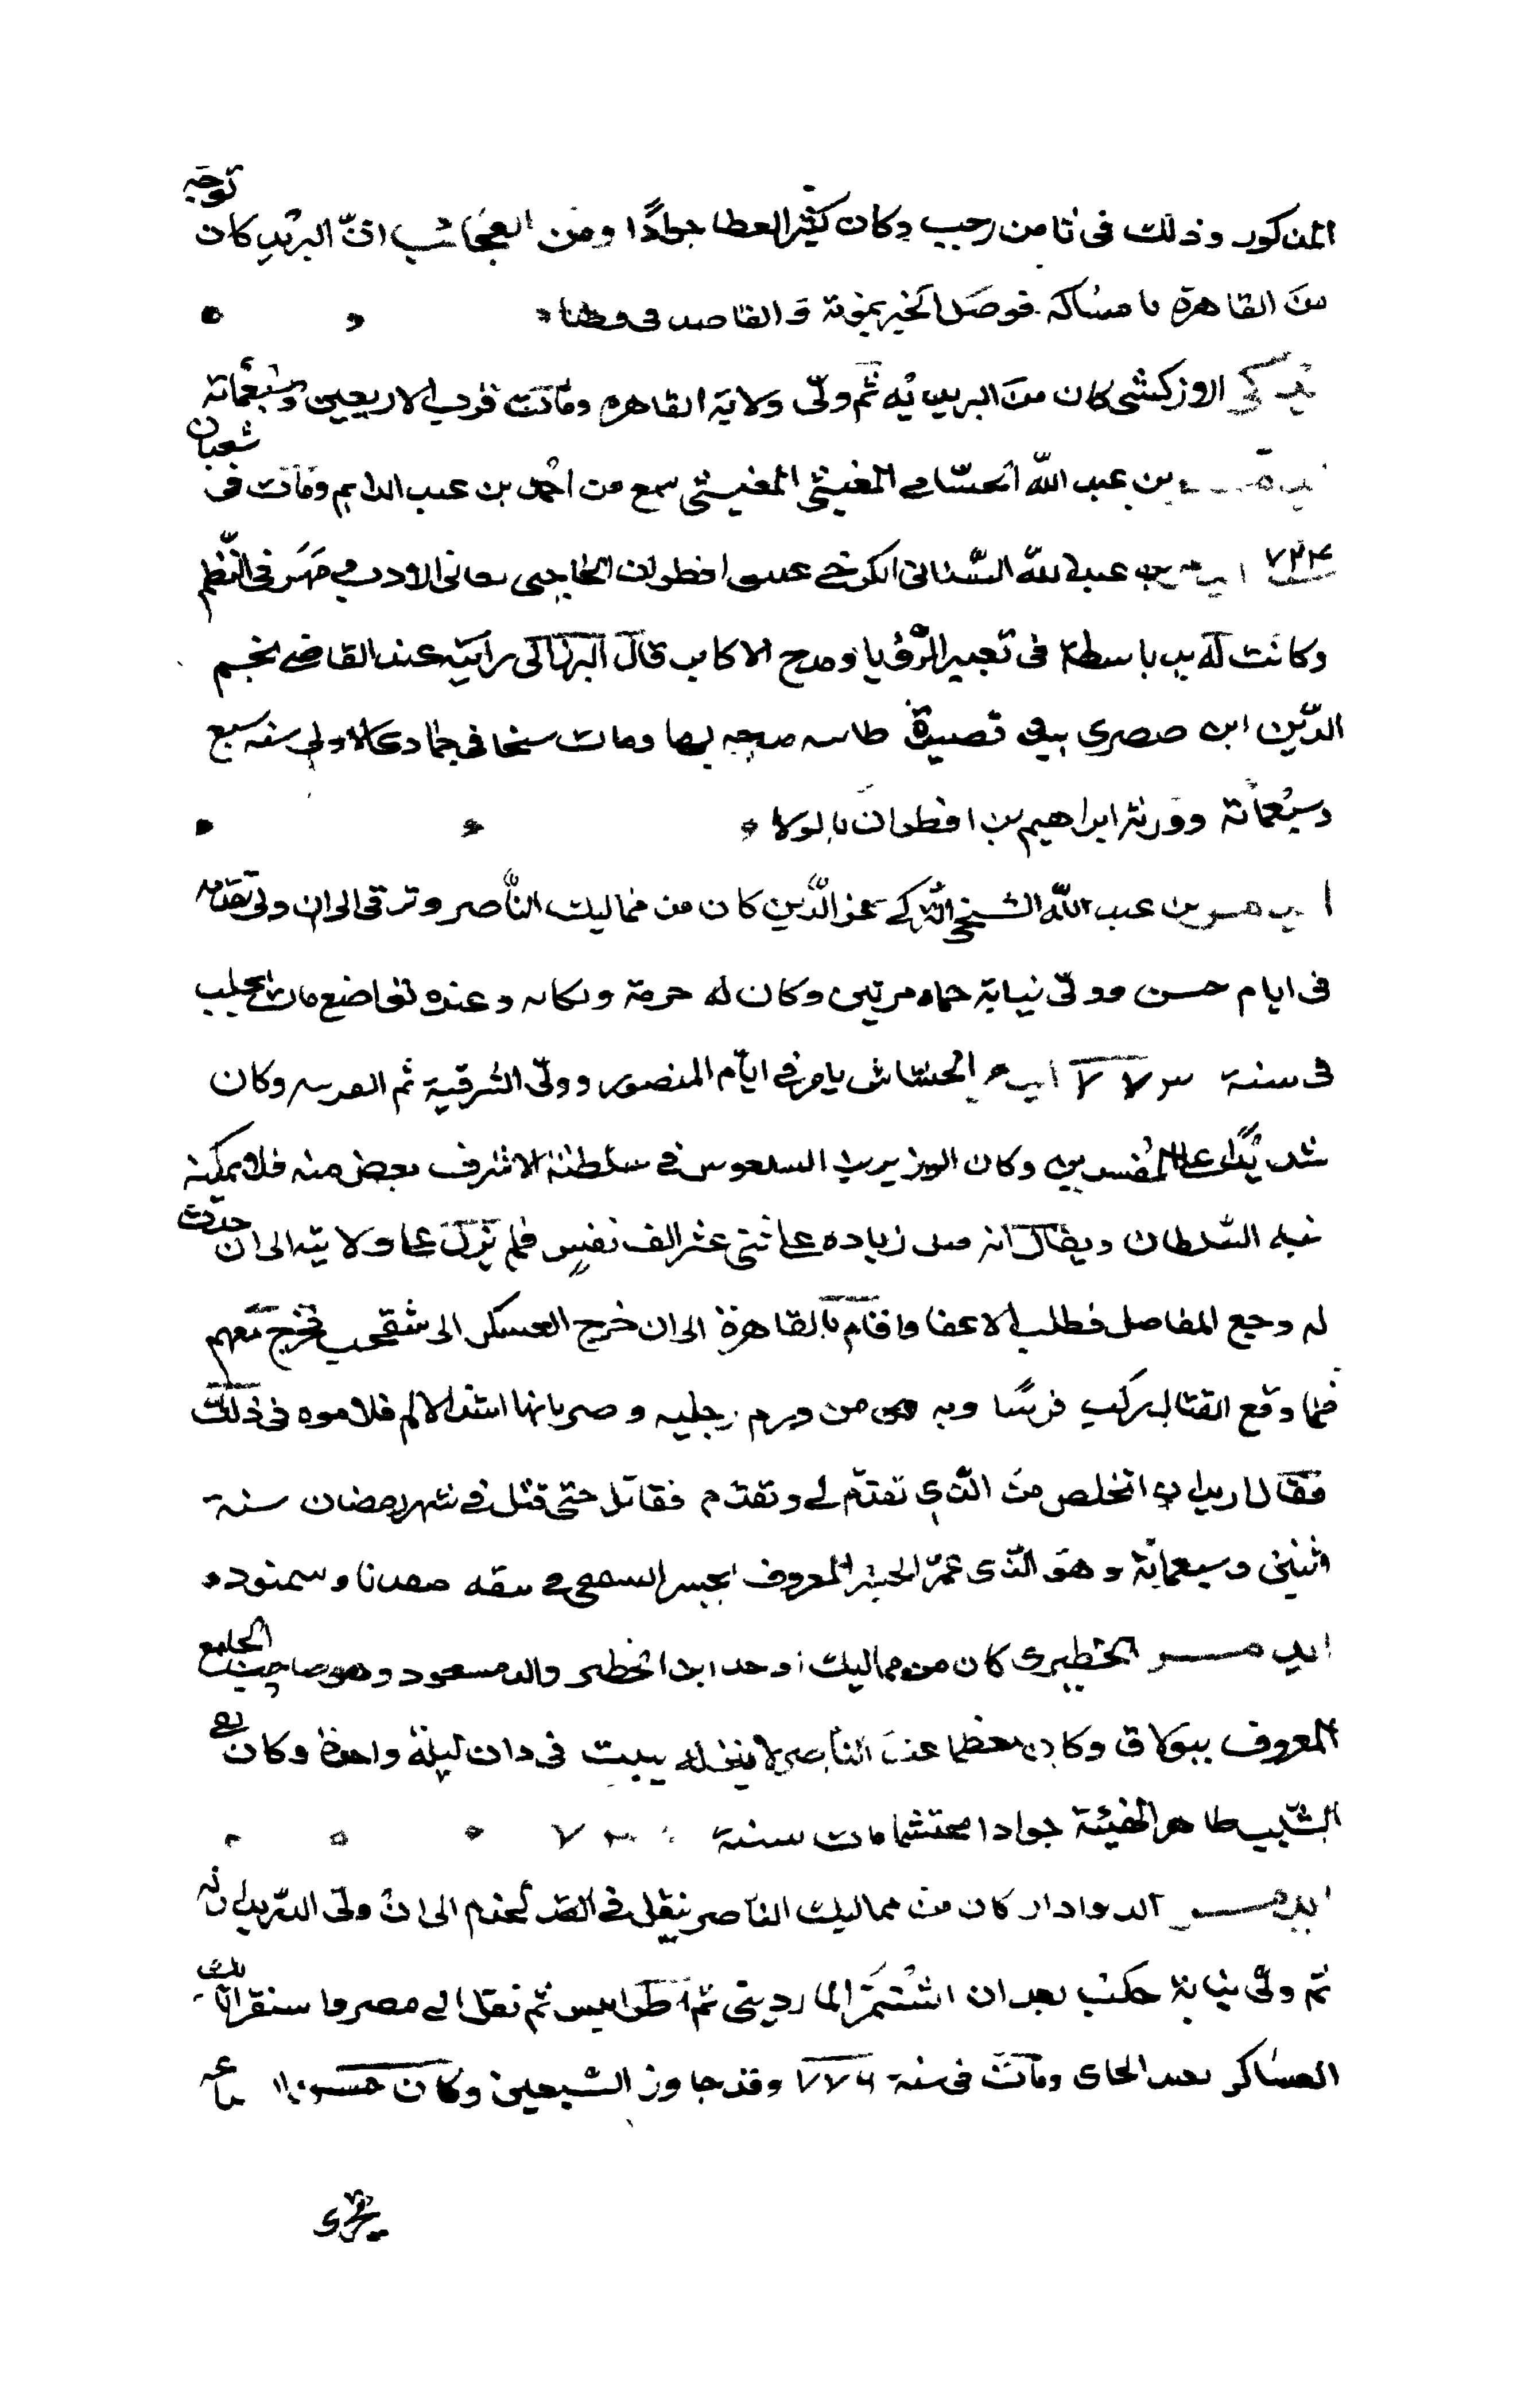 توجه
المذكور وذلك فى ثامن رجب وكان كثير العطا جوادًا ومن العجائب انّ البريد كان
من القاهرة بامساكه فوصل الخبر بموته والقاصد فى قطيا
الزركشى كان من البريديه ثم ولّى ولاية القاهره ومات قرب الاربعين وسبعمائة
بن عبد الله الحسامى المغيثى المغيثى سمع من احمد بن عبد الدايم ومات فى شعبان
٧٢٤ عبد الله السنائى الكرخى عتيق اقطوان الحاجبى تعانى الادب ومهر فى النظم
وكانت له يد باسطة فى تعبير الرؤيا ومدح الاكابر قال البرزالى رايته عند القاضى نجم
الدّين ابن صصرى قصيدة طائيه مدحه بها ومات فى جمادى الاولى سنه سبع
وسبعمائة وورثه ابراهيم بن اقطوان بالولا
ايدمر بن عبد الله الشيخى التركى عز الدّين كان من مماليك الناصر وترقى الى ان ولى تقدمه
فى ايام حسن وولّى نيابة حماه مرتين وكان له حرمة ومكانه وعنده تواضع مات بحلب
فى سنة ٧٧٣ الحسّاش يامر فى ايّام المنصور وولّى الشرقية ثم الغربيه وكان
شديدًا على المفسدين وكان الوزير بن السلعوس فى سلطنة الاشرف يبغض منه فلا يمكنه
منه السّلطان ويقال انه زياده على اثنى عشر الف نفس فلم يزل على ولايته الى ان حدث
له وجع المفاصل فطلب الاعفا واقام بالقاهرة الى ان خرج العسكر الى شقحب فخرج معهم
فلما وقع القتال ركب فرسًا وبه من ورم رجليه وضربانها اشد الالم فلاموه فى ذلك
فقال اتخلص من الذى تقدّم لى وتقدم فقاتل حتى قتل فى شهر رمضان سنة
اثنين وسبعمائة وهو الذى عمّر الجسر المعروف بجسر وسمنود
ايدمر الخطيرى كان من مماليك اوحد ابن الخطير والد مسعود وهو صاحب الجامع
المعروف ببولاق وكان معظما عند الناصر لا يبيت فى داره ليلة واحدة وكان نقى
الشّيب ظاهر الهيئة جوادا محتشما مات سنة ٧٣
ايدمر الدوادار كان من مماليك الناصر ينقل فى الخدم الى ان ولّى
ثم ولى نيابة حلب بعد ان اشقتمر الماردينى ثم طرابلس ثم نقل الى مصر
العساكر بعد الجاى ومات فى سنة ٧٧٦ وقد جاوز السّبعين وكان